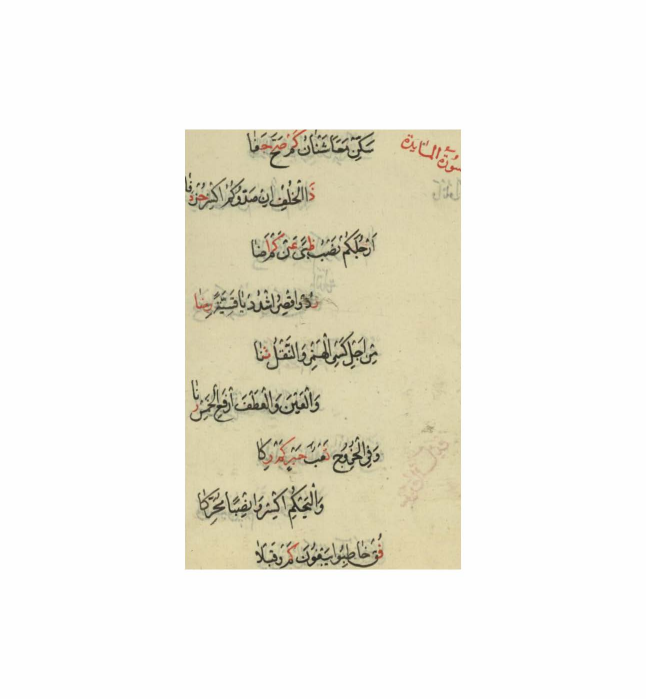 سورة المايدة
سَكِّنْ مَعًا شَنَآنُ كَمْ صَحَّ خَفَا
ذَا الْخُلْفِ اِن صَدُّوكُمُ اكْسِرْ حُزْ دَفَا
اَرْجُلِكُمْ نَصْبُ ظُبًى عَنْ كَمْ اَضَا
رُدْ وَاقْصُرِ اشْدُدْ يَا قَسِيَّةً رِضَا
مِنْ اَجْلِ كَسْرُ الْهَمْزِ وَالنَّقْلُ ثَنَا
وَالْعَيْنَ وَالْعَطْفَ ارْفَعِ الْخَمْسَ رَنَا
وَفِي الْجُرُوحُ ثَعْبُ حَبْرٍ كَمْ رَكَا
وَلْيَحْكُمِ اكْسِرْ وَانْصِبًا مُحَرِّكَا
فُقْ خَاطَبُوا يَبْغُونَ كَمْ وَقَبْلَا